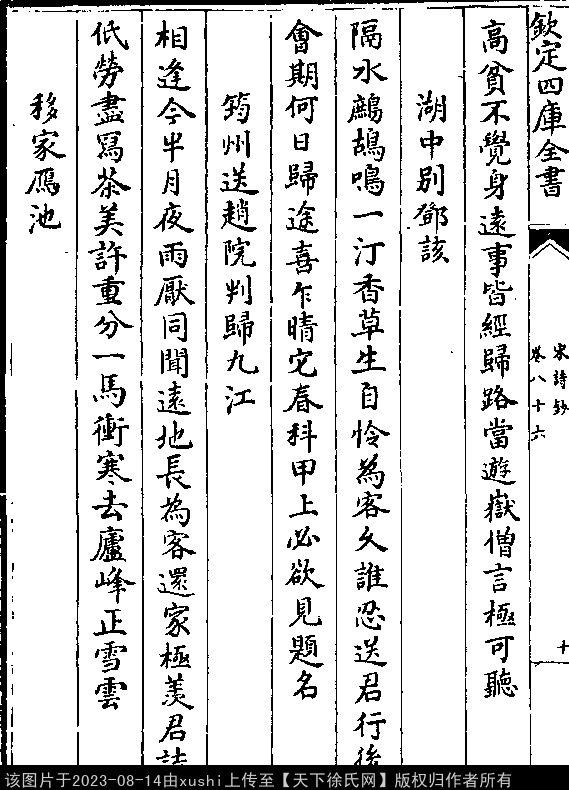 欽定四庫全書
宋詩鈔
卷八十六
十
高貧不覺身遠事皆經歸路當遊嶽僧言極可聽
湖中別鄧該
隔水鷓鴣鳴一汀香草生自憐為客久誰忍送君行後
會期何日歸途喜乍晴它春科甲上必欲見題名
筠州送趙院判歸九江
相逢今半月夜雨厭同聞遠地長為客還家極羡君詩
低勞盡寫茶美許重分一馬衝寒去廬峰正雪雲
移家鴈池
该图片于2023-08-14由xushi上传至【天下徐氏网】版权归作者所有